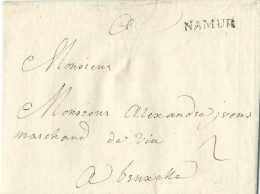 NAMUR
Monsieur
Monsieur Alexandre
marchand de vin
2
a bruxelle